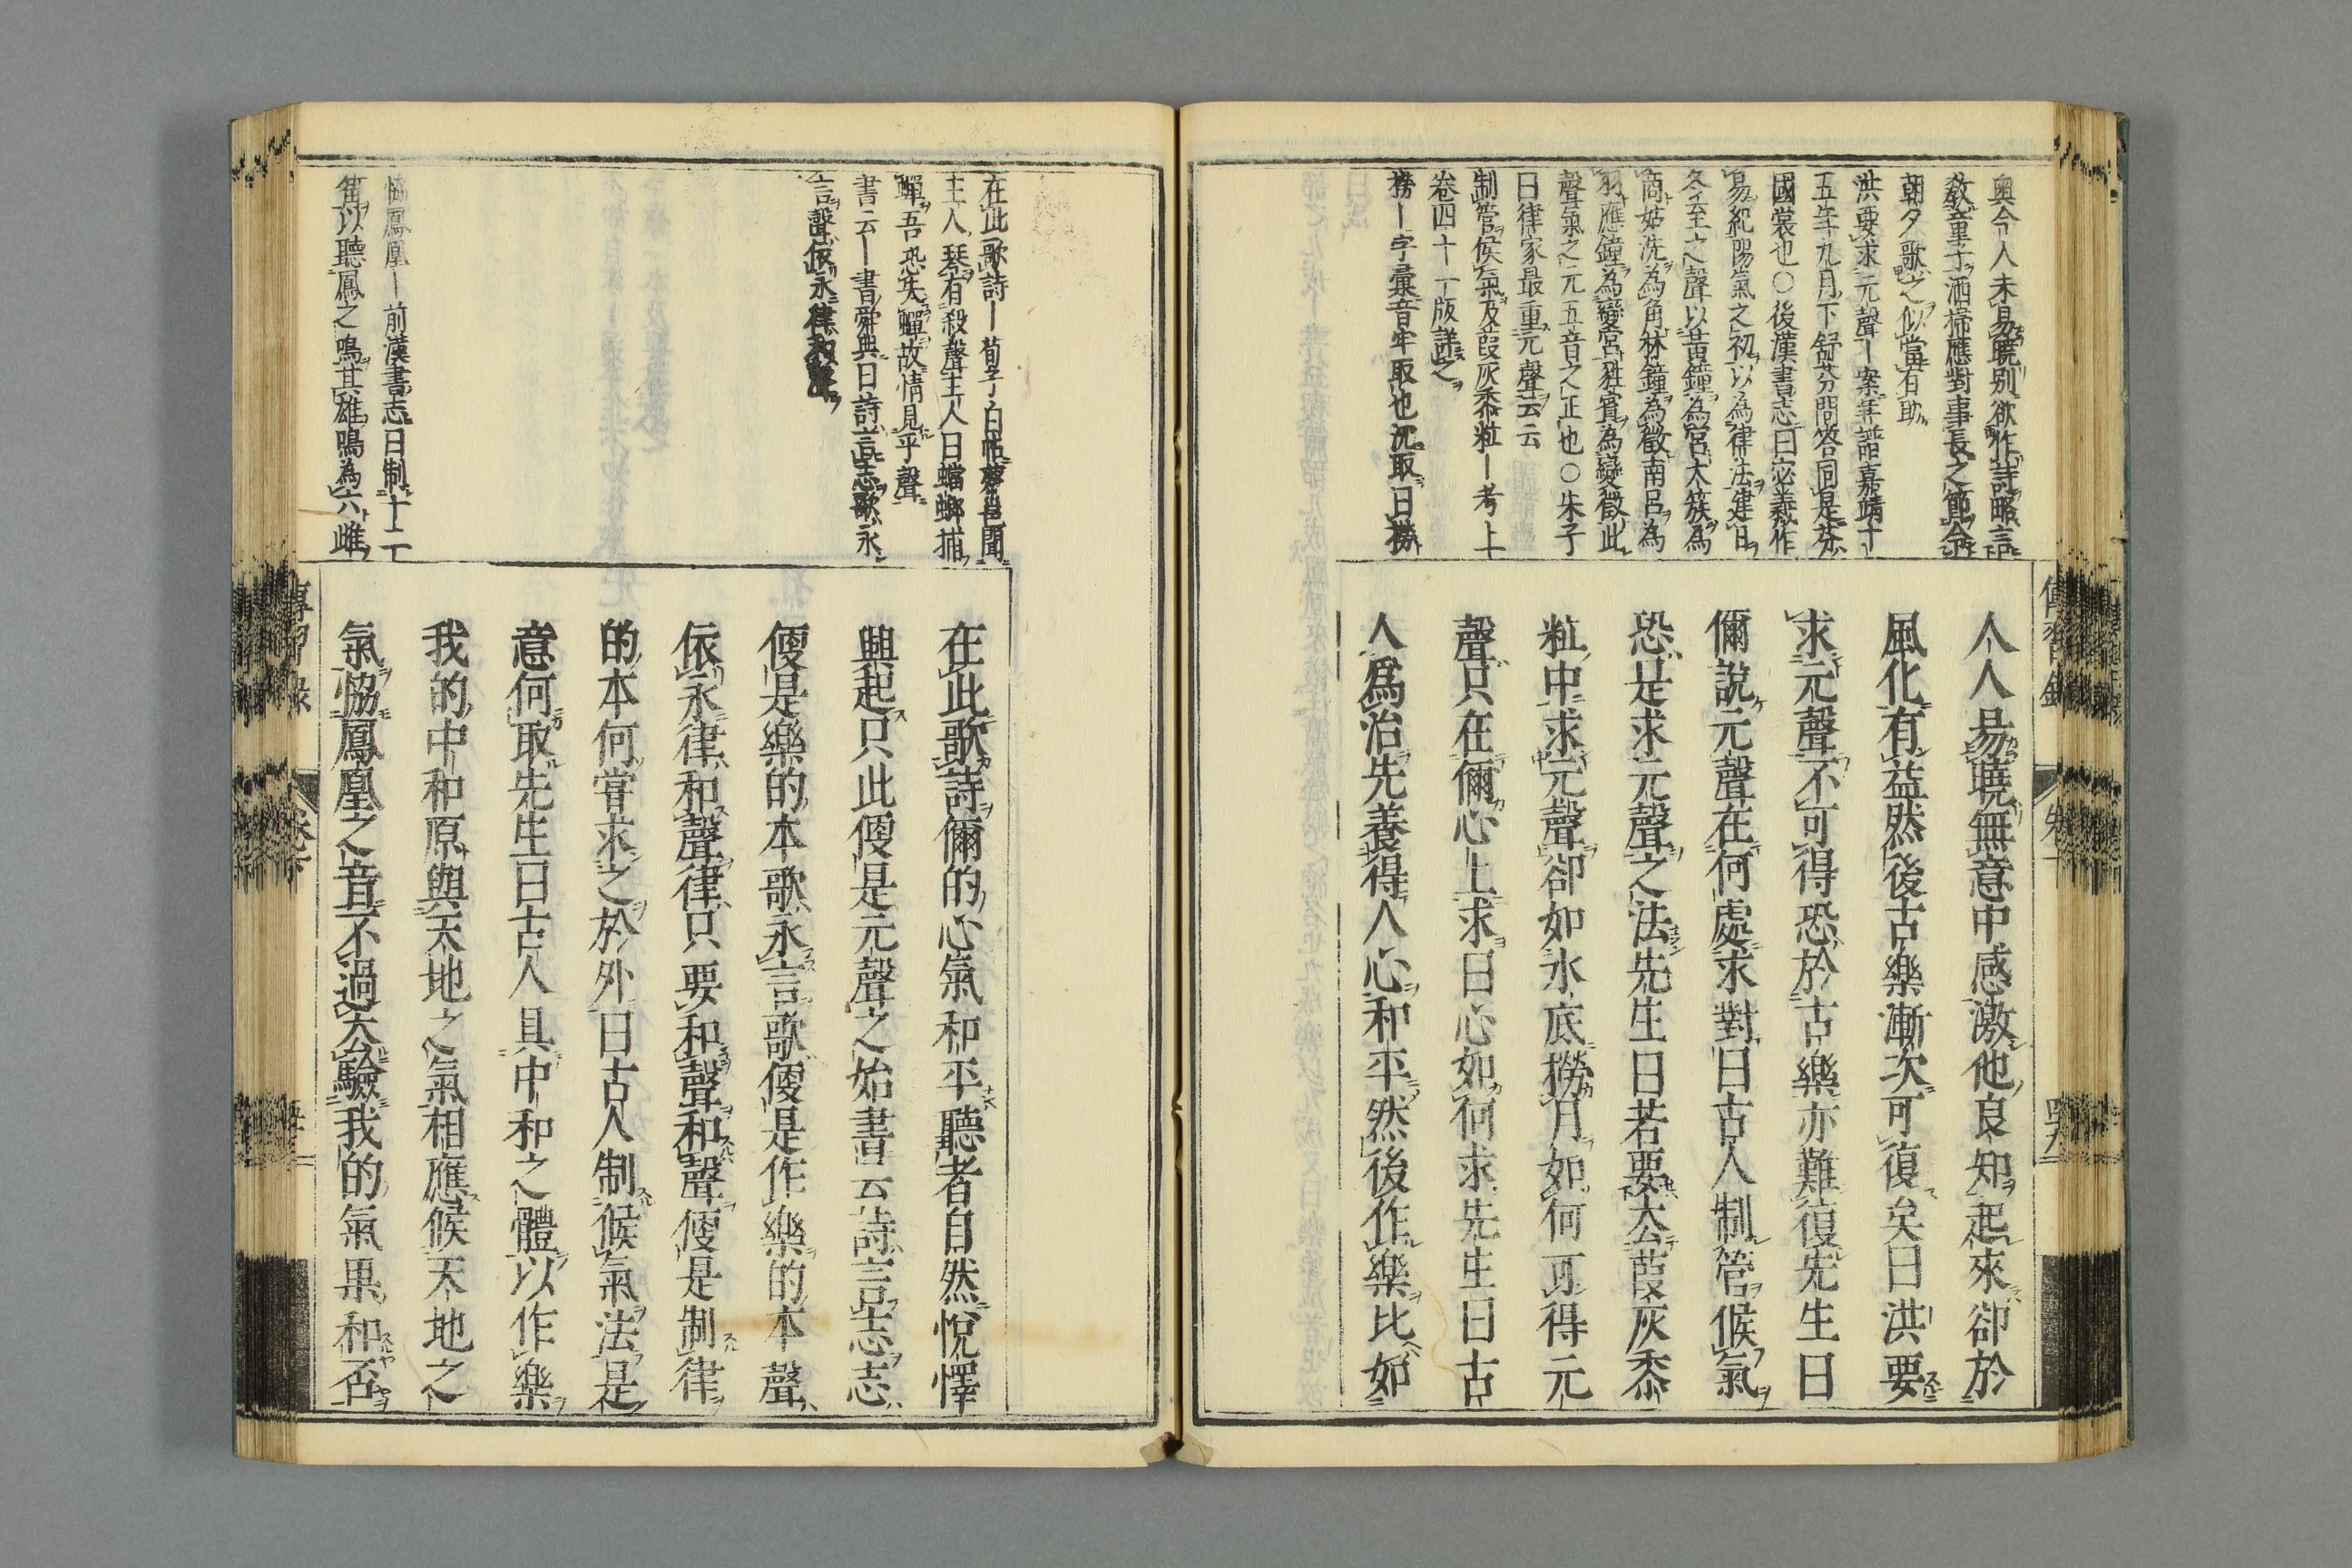 奥今人未易曉別欲作詩略言
教童子洒掃應對事長之節令
朝夕歌之似當有助
洪要求元聲ー案年譜嘉靖十
五年九月下舒芬問答同是芬
國裳也○後漢書志曰宓羲作
易紀陽氣之初以為律法建日
冬至之聲以黃鐘為宮太簇為
商姑洗為角林鐘為徵南呂為
羽應鐘為變宮蕤賓為變徵此
聲氣之元五音之正也○朱子
曰律家最重元聲云云
制管候氣及葭灰黍粒ー考上
卷四十一版詳之
撈ー字彙音牢取也沉取曰撈
人人易曉無意中感激他良知起來卻於
風化有益然後古樂漸次可復矣曰洪要
求元聲不可得恐於古樂亦難復先生曰
儞說元聲在何處求對曰古人制管候氣
恐是求元聲之法先生曰若要去葭灰黍
粒中求元聲卻如水底撈月如何可得元
聲只在儞心上求曰心如何求先生曰古
人爲治先養得人心和平然後作樂比如
在此歌詩ー荀子白帖蔡邕聞
主人琴有殺聲主人曰蟷螂捕
蟬吾恐失蟬故情見乎聲
書云ー書舜典曰詩言志歌永
言聲依永律和聲
恊鳳凰ー前漢書志曰制十二
筩以聽鳳之鳴其雄鳴為六雌
在此歌詩儞的心氣和平聽者自然悅懌
興起只此便是元聲之始書云詩言志志
便是樂的本歌永言歌便是作樂的本聲
依永律和聲律只要和聲和聲便是制律
的本何嘗求之於外曰古人制候氣法是
意何取先生曰古人具中和之體以作樂
我的中和原與天地之氣相應候天地之
氣恊鳳凰之音不過去驗我的氣果和否